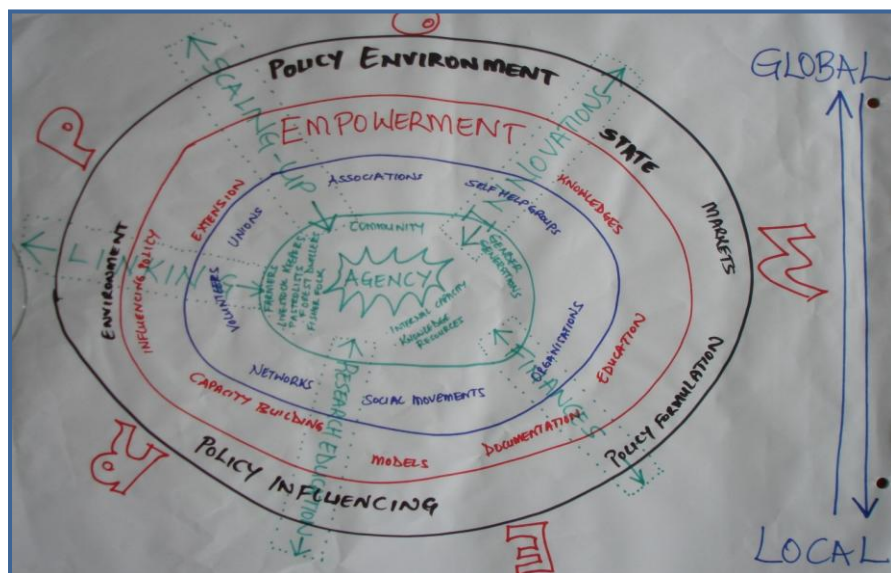 POLICY ENVIRONMENT
STATE
MARKETS
POLICY FORMULATION
POLICY INFLUENCING
ENVIRONMENT
EMPOWERMENT
KNOWLEDGES
EDUCATION
DOCUMENTATION
MODELS
CAPACITY BUILDING
INFLUENCING POLICY
EXTENSION
ASSOCIATIONS
SELF HELP GROUPS
ORGANISATIONS
SOCIAL MOVEMENTS
NETWORKS
VOLUNTEERS
UNIONS
COMMUNITY
GENDER
GENERATIONS
INTERNAL CAPACITY
KNOWLEDGE
RESOURCES
FARMERS
LIVESTOCK KEEPERS
PASTORALISTS
FOREST DWELLERS
FISHER FOLK
AGENCY
SCALING-UP
INNOVATIONS
FINANCES
RESEARCH EDUCATION
LINKING
P
O
W
E
R
GLOBAL
LOCAL